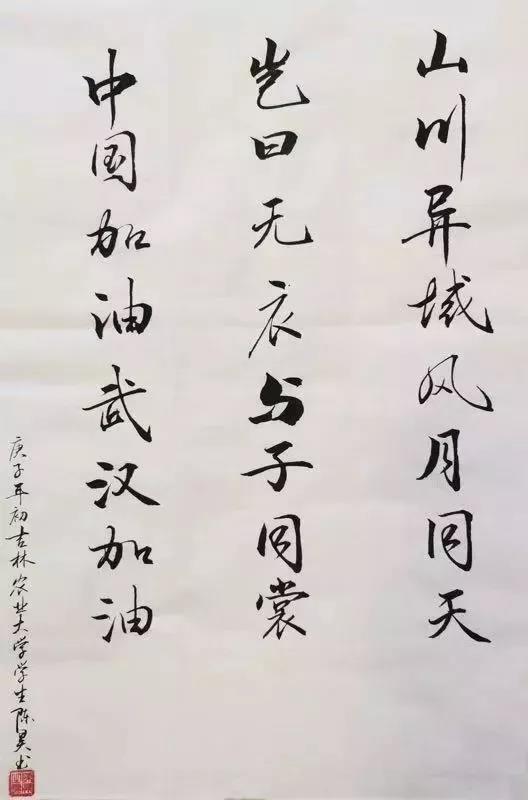 山川异域风月同天
岂曰无衣与子同裳
中国加油武汉加油
庚子年初吉林农业大学学生陈昊书